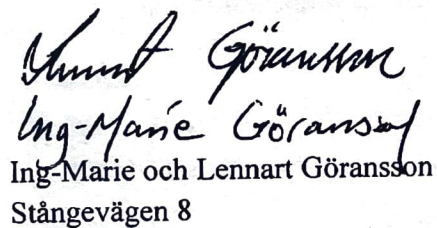 Lennart Göransson
Ing-Marie Göransson
Ing-Marie och Lennart Göransson
Stångevägen 8